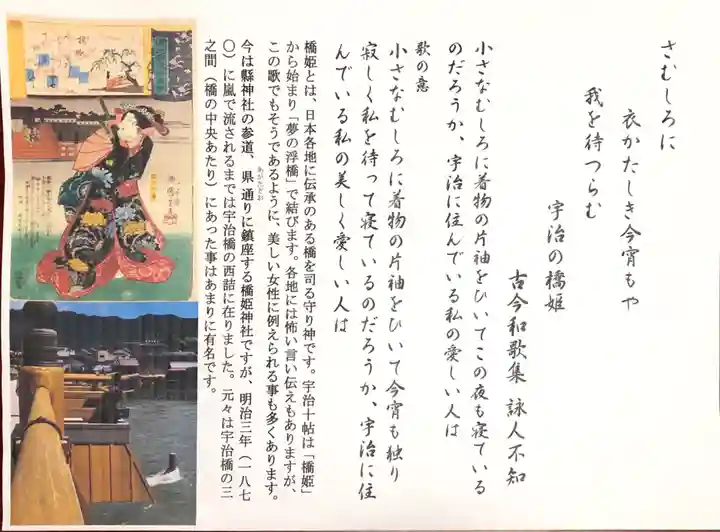 さむしろに
衣かたしき今宵もや
我を待つらむ
宇治の橋姫
古今和歌集 詠人不知
小さなむしろに着物の片袖をひいてこの夜も寝ている
のだろうか、宇治に住んでいる私の愛しい人は
歌の意
小さなむしろに着物の片袖をひいて今宵も独り
寂しく私を待って寝ているのだろうか、宇治に住
んでいる私の美しく愛しい人は
橋姫とは、日本各地に伝承のある橋を司る守り神です。宇治十帖は「橋姫」
から始まり「夢の浮橋」で結びます。各地には怖い言い伝えもありますが、
この歌でもそうであるように、美しい女性に例えられる事も多くあります。
今は縣神社の参道、県通りに鎮座する橋姫神社ですが、明治三年(一八七
あがたどおり
〇)に嵐で流されるまでは宇治橋の西詰に在りました。元々は宇治橋の三
之間(橋の中央あたり)にあった事はあまりに有名です。